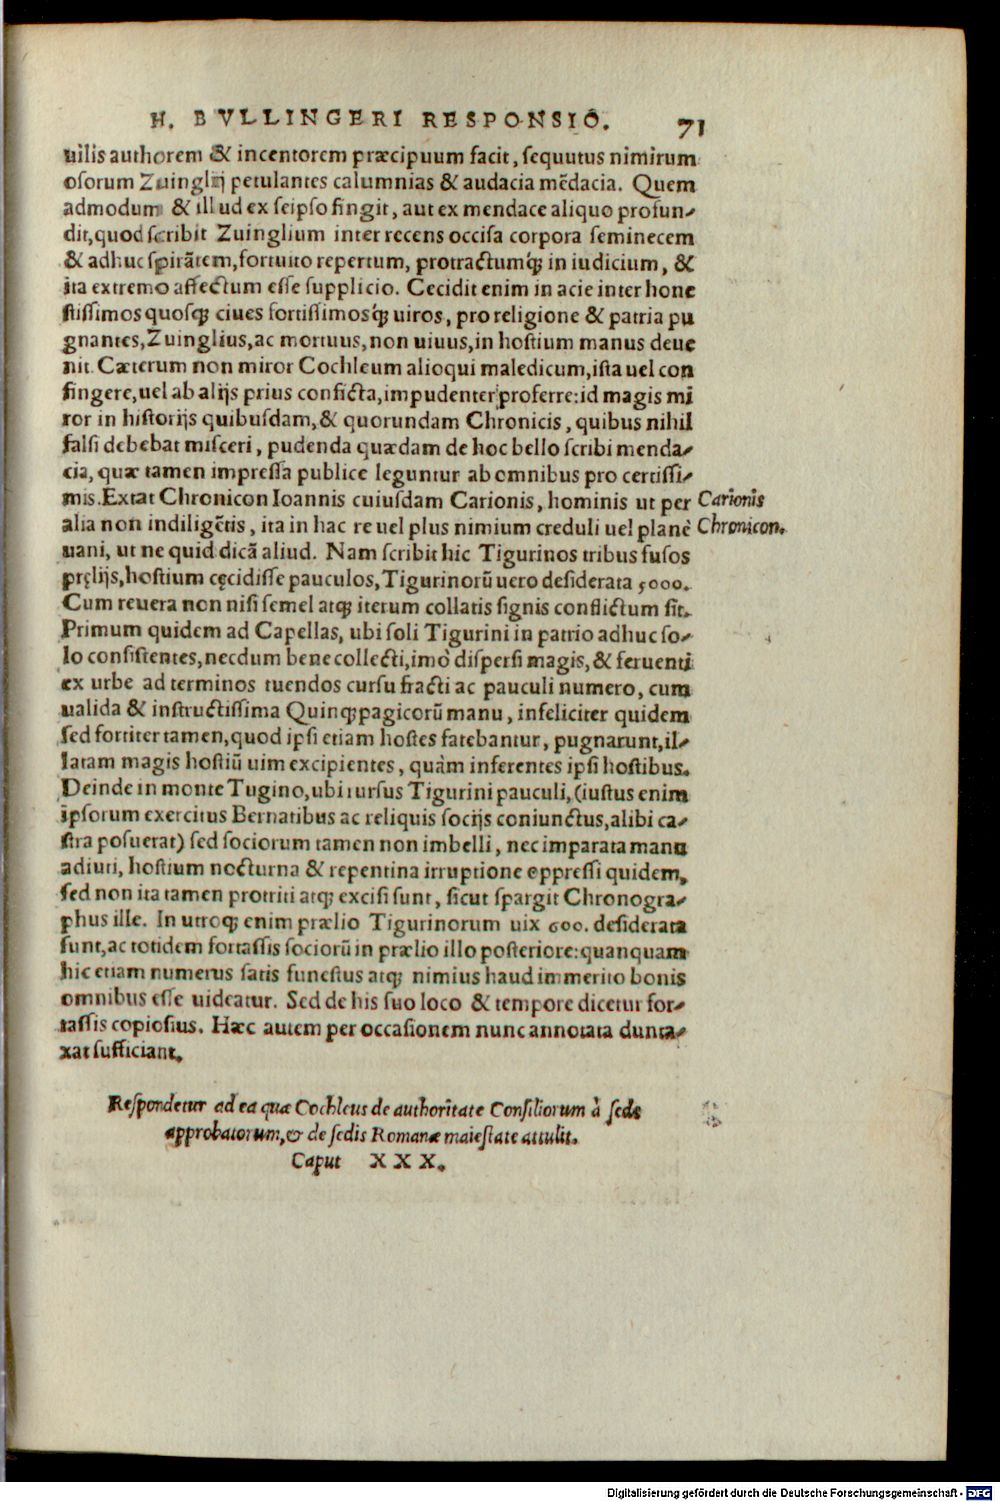 H. BVLLINGERI RESPONSIO. 71
uilis authorem & incentorem præcipuum facit, sequutus nimirum
osorum Zuinglij petulantes calumnias & audacia mēdacia. Quem
admodum & illud ex seipso fingit, aut ex mendace aliquo profun-
dit, quod scribit Zuinglium inter recens occisa corpora seminecem
& adhuc spirātem, fortuito repertum, protractumq́; in iudicium, &
ita extremo affectum esse supplicio. Cecidit enim in acie inter hone
stissimos quosq; ciues fortissimosq́; uiros, pro religione & patria pu
gnantes, Zuinglius, ac mortuus, non uiuus, in hostium manus deue
nit. Cæterum non miror Cochleum alioqui maledicum, ista uel con
fingere, uel ab alijs prius conficta, impudenter proferre: id magis mi
ror in historijs quibusdam, & quorundam Chronicis, quibus nihil
falsi debebat misceri, pudenda quædam de hoc bello scribi menda-
cia, quæ tamen impressa publice leguntur ab omnibus pro certissi-
mis. Extat Chronicon Ioannis cuiusdam Carionis, hominis ut per
Carionis
alia non indiligētis, ita in hac re uel plus nimium creduli uel planè
Chronicon.
uani, ut ne quid dicā aliud. Nam scribit hic Tigurinos tribus fusos
pręlijs, hostium cęcidisse pauculos, Tigurinorū uero desiderata 5000.
Cum reuera non nisi semel atq; iterum collatis signis conflictum sit.
Primum quidem ad Capellas, ubi soli Tigurini in patrio adhuc so-
lo consistentes, necdum bene collecti, imò dispersi magis, & feruenti
ex urbe ad terminos tuendos cursu fracti ac pauculi numero, cum
ualida & instructissima Quinq;pagicorū manu, infeliciter quidem
sed fortiter tamen, quod ipsi etiam hostes fatebantur, pugnarunt, il-
latam magis hostiū uim excipientes, quàm inferentes ipsi hostibus.
Deinde in monte Tugino, ubi rursus Tigurini pauculi, (iustus enim
ipsorum exercitus Bernatibus ac reliquis socijs coniunctus, alibi ca-
stra posuerat) sed sociorum tamen non imbelli, nec imparata manu
adiuti, hostium nocturna & repentina irruptione oppressi quidem,
sed non ita tamen protriti atq; excisi sunt, sicut spargit Chronogra-
phus ille. In utroq; enim prælio Tigurinorum uix 600. desiderata
sunt, ac totidem fortassis sociorū in prælio illo posteriore: quanquam
hic etiam numerus satis funestus atq; nimius haud immerito bonis
omnibus esse uideatur. Sed de his suo loco & tempore dicetur for-
tassis copiosius. Hæc autem per occasionem nunc annotata dunta-
xat sufficiant.
Respondetur ad ea quæ Cochleus de authoritate Consiliorum à sede
approbatorum, & de sedis Romanæ maiestate attulit.
Caput XXX.
Digitalisierung gefördert durch die Deutsche Forschungsgemeinschaft - DFG